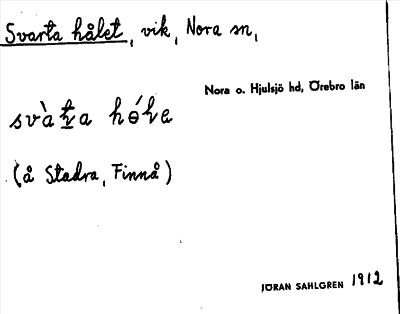 Svarta hålet, vik, Nora sn,
Nora o. Hjulsjö hd, Örebro län
(å Stadra, Finnå)
JÖRAN SAHLGREN 1912